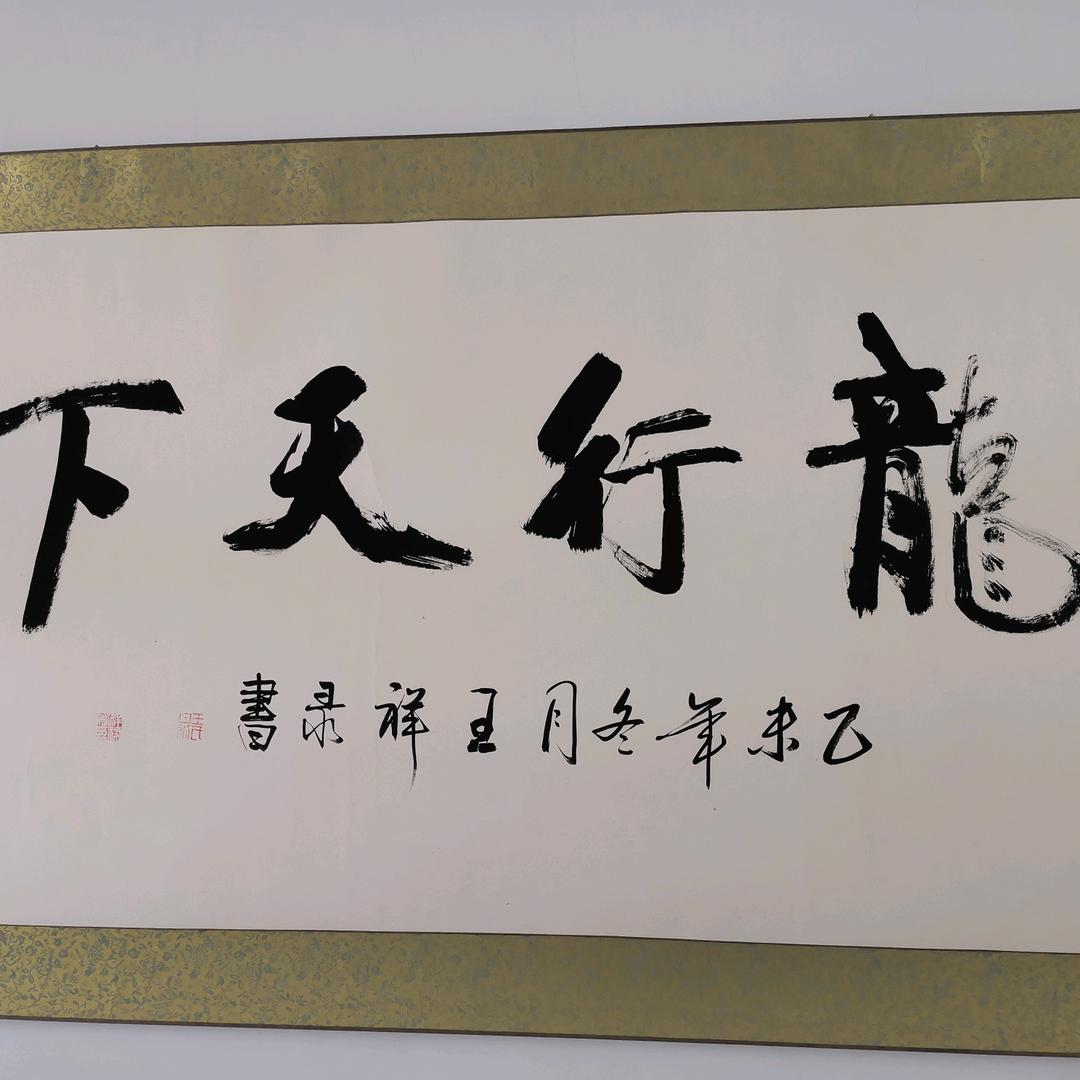 龍行天下
乙未年冬月王祥录書